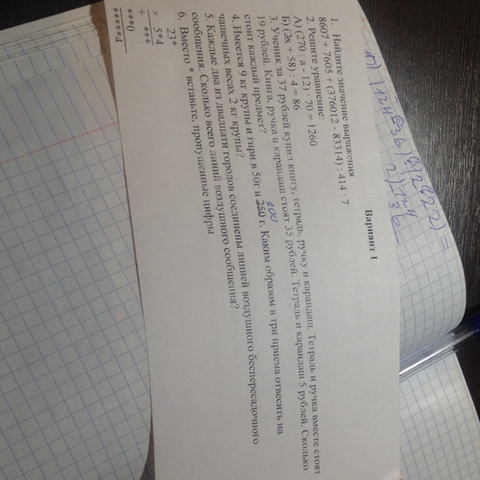 Вариант 1
1. Найдите значение выражения
8607 + 7605 + (376012 - 83314) : 414 : 7
2. Решите уравнение:
А) (270 : а - 12) · 70 = 1260
Б) (2х + 58) : 4 = 86
3. Ученик за 37 рублей купил книгу, тетрадь, ручку и карандаш. Тетрадь и ручка вместе стоят
19 рублей. Книга, ручка и карандаш стоят 35 рублей. Тетрадь и карандаш 5 рублей. Сколько
стоит каждый предмет?
200
4. Имеется 9 кг крупы и гири в 50г и 250 г. Каким образом в три приема отвесить на
чашечных весах 2 кг крупы?
5. Каждые два из двадцати городов соединены линией воздушного беспересадочного
сообщения. Сколько всего линий воздушного сообщения?
6. Вместо * вставьте, пропущенные цифры
23*
× 5*4
***
+
***0
*****4